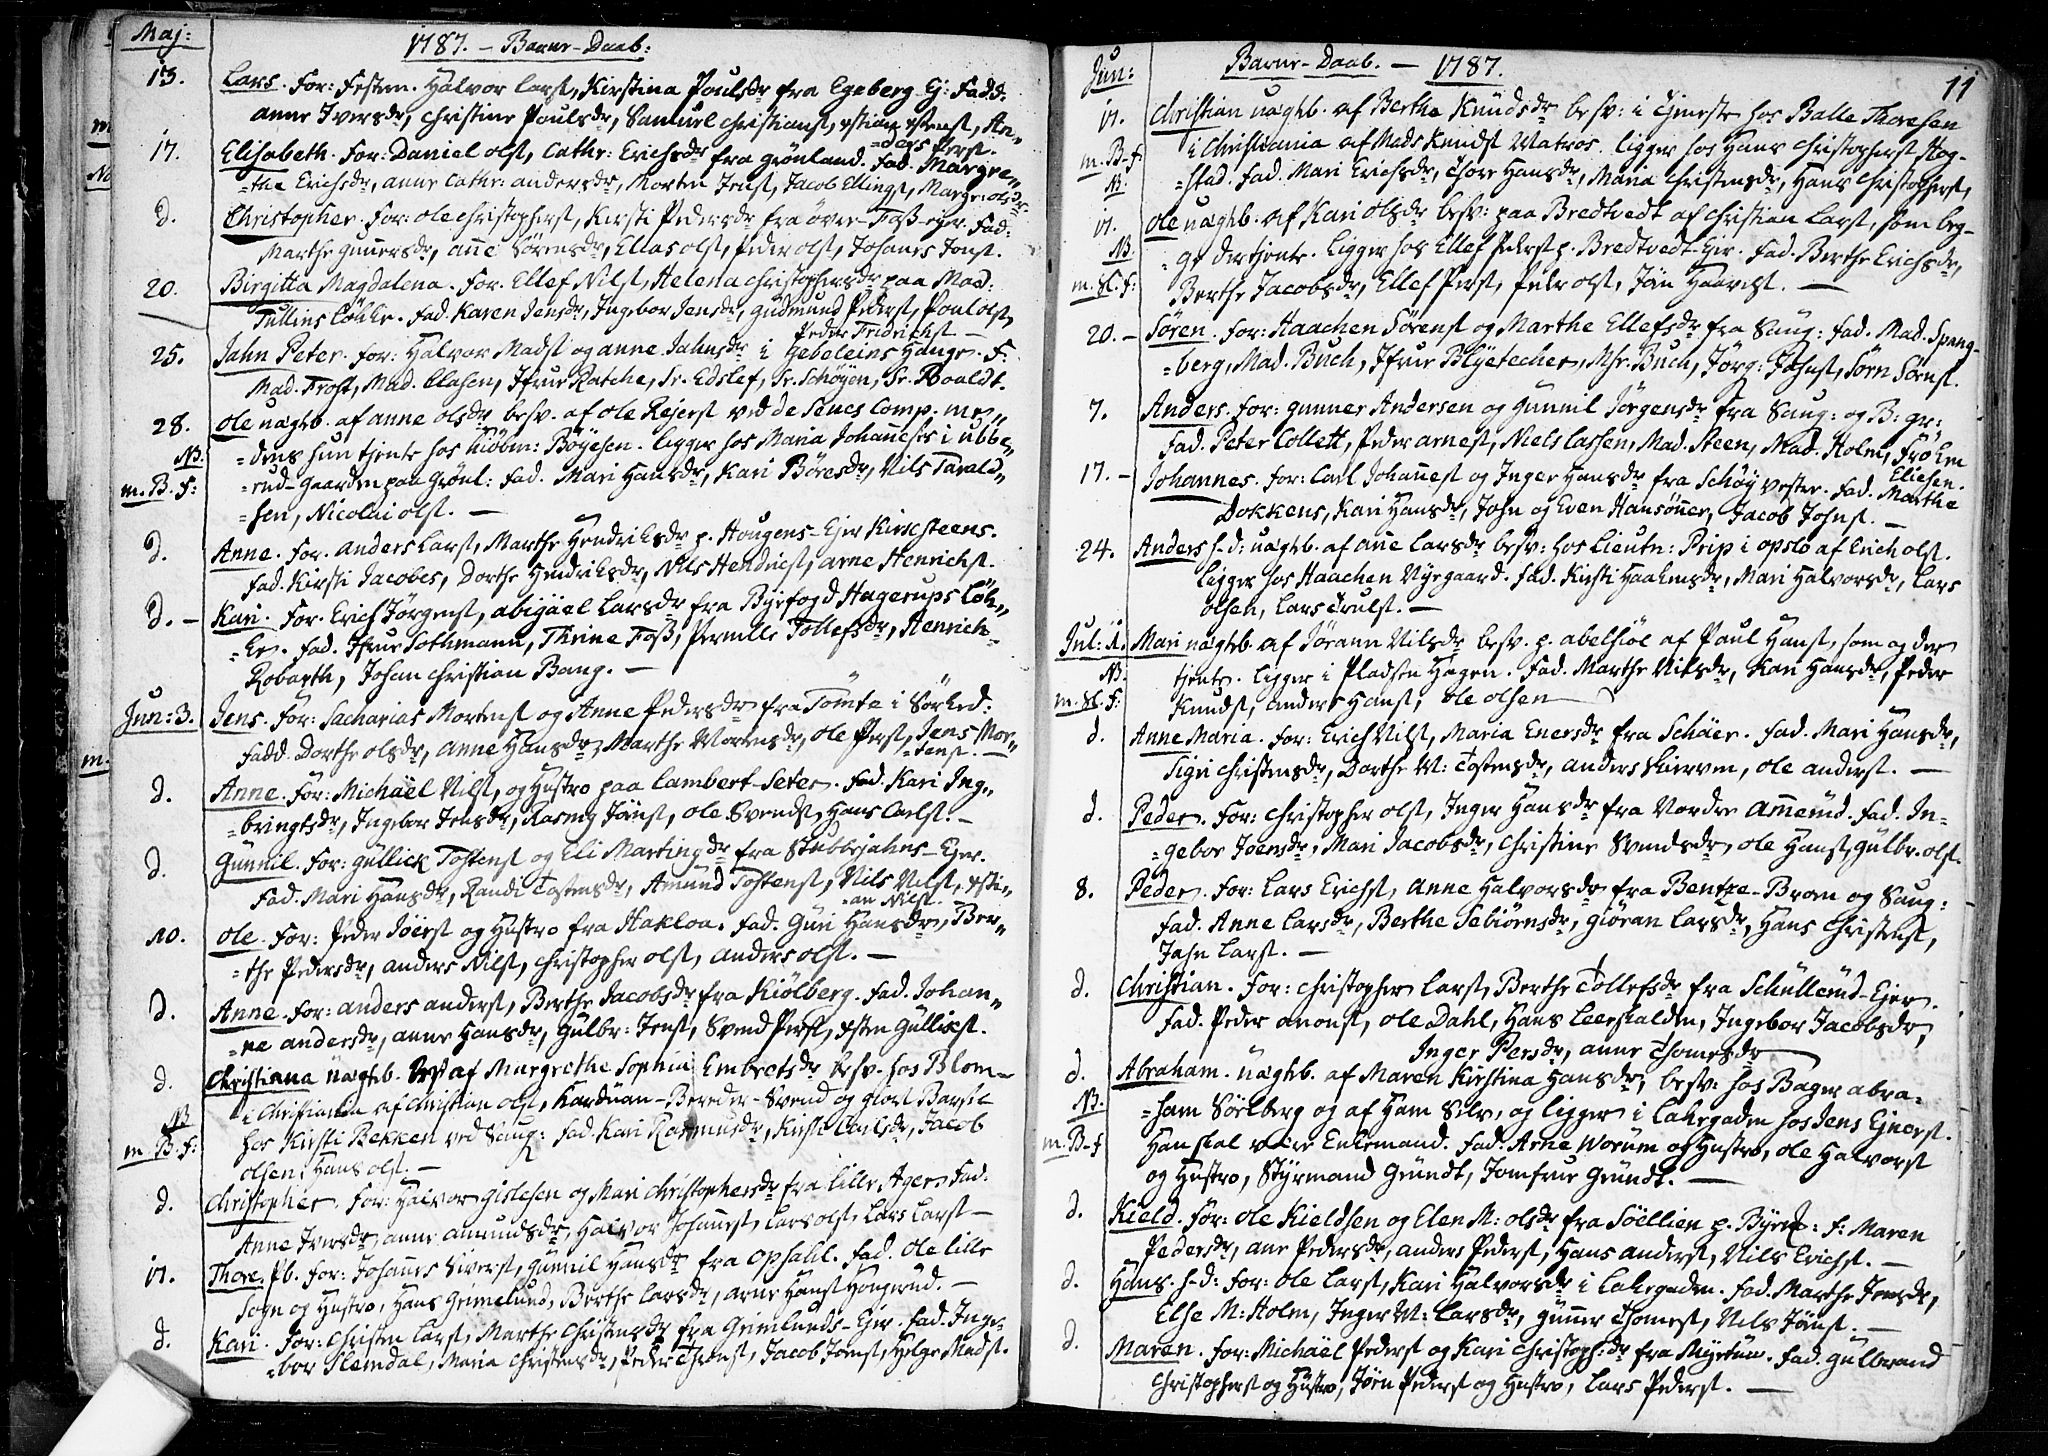 Maj: 1787. – Barne-Daab:
13. Lars. For: Festen. Halvor Larst, Kirstina Poulsdr fra Egeberg-Ej: Fadd:
Anne Iversdr, Christine Poulsdr, Samuel Christianst, An-
ders Perst.
17. Elisabeth. For: Daniel Olst, Cathr: Erichsdr fra Grønland. Fad. Margre-
the Erichsdr, Anne Cathr: Andersdr, Morten Jenst, Jacob Ellingst, Margr: Olsdr.
D. Christopher. For: Ole Christopherst, Kirsti Pedersdr fra øvre-Foss-Ejer. Fad:
Marthe Gunnersdr, Anne Sørensdr, Ellas Olst, Peder Olst, Johanes Jonst.
20. Birgitta Magdalena. For. Ellef Nilst, Helena Christophersdr paa Mad:
Tullins Løkke. Fad. Karen Jensdr, Ingebor Jensdr, Gudmund Pederst, Poul Olst,
Peder Fridrichst –
25. Jahn Peter. For: Halvor Madst og Anne Jahnsdr i Gebeleins Hauge. F:
Mad. Frost, Mad. Clasen, Jfrue Ratche, Sr. Edslef, Sr. Schøyen, Sr. Roaldt.
28. Ole uægteb. af Anne Olsdr besv. af Ole Rejerst ved de Senes Comp. me-
NB. dens hun tjente hos Kiøbm: Bøyesen. ligger hos Maria Johannesdr i Ubbe-
m. B. F: rud-gaarden paa Grønl: Fad. Mari Hansdr, Kari Børesdr, Nils Tarald-
sen, Nicolai Olst. –
D. Anne. For. Anders Larst, Marthe Hendrichsdr p. Hougens-Ejer Kirchsteens.
Fad. Kirsti Jacobes, Dorthe Hendrichsdr, Nils Hendrichst, Arne Henrichst.
D. – Kari. For. Erich Jørgenst, Abigael Larsdr fra Byefogd Hagerups Løk-
ke. Fad. Jfrue Tothmann, Thrine Foss, Pernille Tollefsdr, Henrich
Robarth, Johan Christian Bang. –
Jun: 3. Jens. For: Sacharias Mortenst og Anne Pedersdr fra Tømte i Sørked:
Fadd. Dorthe Olsdr, Anne Hansdr, Marthe Mortensdr, Ole Perst, Jens Mor-
tenst. –
D. Anne. For: Michael Nilst, og Hustro paa Lambert-Seter. Fad. Kari Ing-
bringtsdr, Ingebor Jensdr, Rasmus Jönst, Ole Svendst, Hans Carlst. –
D. Gunnil. For: Gullick Tostenst og Eli Martinsdr fra Stubberjahns-Ejer.
Fad. Mari Hansdr, Randi Tostensdr, Amund Tostenst, Nils Nilst, Xsti-
an Nilst.
10. Ole. For: Peder Joerst og Hustro fra Hakloa. Fad. Guri Hansdr, Ber-
the Pedersdr, Anders Nilst, Christopher Olst, Anders Olst. –
D. Anne. For: Anders Anderst, Berthe Jacobsdr fra Kiølberg. Fad. Johan-
ne Andersdr, Anne Hansdr, Gulbr: Jenst, Svend Perst, Xsten Gullichst.
D. Christianna uægteb. af Margrethe Sophia Embretsdr besv. hos Blom–
NB i Christiania af Christian Olst, Karduan-Bereder-Svend og giort Barsel
m. B. F: hos Kirsti Bekken ved Saug: Fad. Kari Rasmusdr, Kirsti Carlsdr, Jacob
Olsen, Hans Olst. –
D. Christopher. For: Halvor Gislesen og Mari Christophersdr fra Lille Ager. Fad:
Anne Iversdr, Anne Amundsdr, Halvor Johannest, Lars Olst, Lars Larst –
17. Thore. Pb. For: Johannes Siverst, Gunnil Hansdr fra Opsahl. Fad. Ole Lille
Sogn og Hustro, Hans Grimelund, Berthe Larsdr, Arne Hanst Hougerud. –
D. Kari. For: Christen Larst, Marthe Christensdr fra Grimlunds-Ejer. Fad. Inge-
bor Slemdal, Maria Christensdr, Peder Thronst, Jacob Joenst, Helge Madst.
Jun: Barne-Daab. – 1787. 11
17. Christian uægteb. af Berthe Knudsdr besv: i Tjeneste hos Balle Thoresen
m. B–f. i Christiania af Mads Knudst Matros. ligger hos Hans Christopherst Hog-
NB. stad. Fad. Mari Erichsdr, Thore Hansdr, Maria Christensdr, Hans Christopherst,
17. Ole uægteb. af Kari Olsdr besv: paa Bredtvedt af Christian Larst, som beg-
NB. ge der tjente. Ligger hos Ellef Pederst p. Bredtvedt-Ejer. Fad. Berthe Erichsdr,
m. Sl. f: Berthe Jacobsdr, Ellef Perst, Peder Olst, Jon Haavelst. –
20. – Søren. For: Haachen Sørenst og Marthe Ellefsdr fra Saug: Fad. Mad. Spang-
berg, Mad. Buch, Jfrue Blyetecher, Msr. Buch, Jørg: Johnst, Sørn Sørnst.
7. Anders. For: Gunner Andersen og Gunnil Jørgensdr fra Saug: og B: gr:
Fad. Peter Collett, Peder Arnest, Niels Lassen, Mad. Steen, Mad. Holm, Frøken
Eliesen.
17. – Johannes. For: Carl Johannest og Inger Hansdr fra Schøy vestre. Fad. Marthe
Dokkens, Kari Hansdr, John og Even Hansønner, Jacob Johnst. –
24. Anders h.d: uægteb. af Ane Larsdr besv: hos Lieutn: Prip i Opslo af Erich Olst.
Ligger hos Haachen Nyegaard. Fad. Kirsti Haachensdr, Mari Halvorsdr, Lars
Olsen, Lars Trulst. –
Jul: 1. Mari uægteb. af Jörann Nilsdr besv. p. Abelsiøe af Paul Hanst, som og der
NB. tjente. Ligger i Pladsen Hagen. Fad. Marthe Nilsdr, Kari Hansdr, Peder
m. Sl. f: Knudst, Anders Hanst, Ole Olsen
d. Anne Maria. For: Erich Nilst, Maria Enersdr fra Schöer. Fad. Mari Hansdr,
Sigri Christensdr, Dorthe M: Tostensdr, Anders Kierven, Ole Anderst. –
d. Peder. For: Christopher Olst, Inger Hansdr fra Nordre Ammerud. Fad. In-
gebor Joensdr, Mari Jacobsdr, Christine Svendsdr, Ole Hanst, Gulbr. Olst.
8. Peder. For: Lars Erichst, Anne Halvorsdr fra Bentze-Broen og Saug:
Fad. Anne Larsdr, Berthe Sebiörnsdr, Giöran Larsdr, Hans Christenst,
Jahn Larst. –
d. Christian. For: Christopher Larst, Berthe Tollefsdr fra Schullerud-Ejer.
Fad. Peder Aronst, Ole Dahl, Hans Leerskalden, Ingebor Jacobsdr,
Inger Persdr, Anne Thomesdr
d. Abraham. uægteb. af Maren Kirstina Hansdr, besv: hos Bager Abra-
NB. ham Söelberg og af Ham Selv, og ligger i Lakegaden hos Jens Ejnerst.
m. B–f Han skal være Enkemand. Fad. Arne Worum og Hustro, Ole Halvorst
og Hustro, Styrmand Grundt, Jomfrue Grundt. –
d. Kield. For: Ole Kieldsen og Elen M: Olsdr fra Söellien p. Byref: f: Maren
Pedersdr, Ane Pedersdr, Anders Pederst, Hans Anderst, Nils Erichst. –
d. Hans. h–d: For: Ole Larst, Kari Halvorsdr i Lakegaden. Fad. Marthe Jensdr,
Else M: Holm, Inger M: Larsdr, Gunner Thomest, Nils Jönst. –
d. Maren. For: Michael Pederst og Kari Christoph:dr fra Myretun. Fad. Gulbrand
Christopherst og Hustro, Jörn Pederst og Hustro, Lars Pederst. –